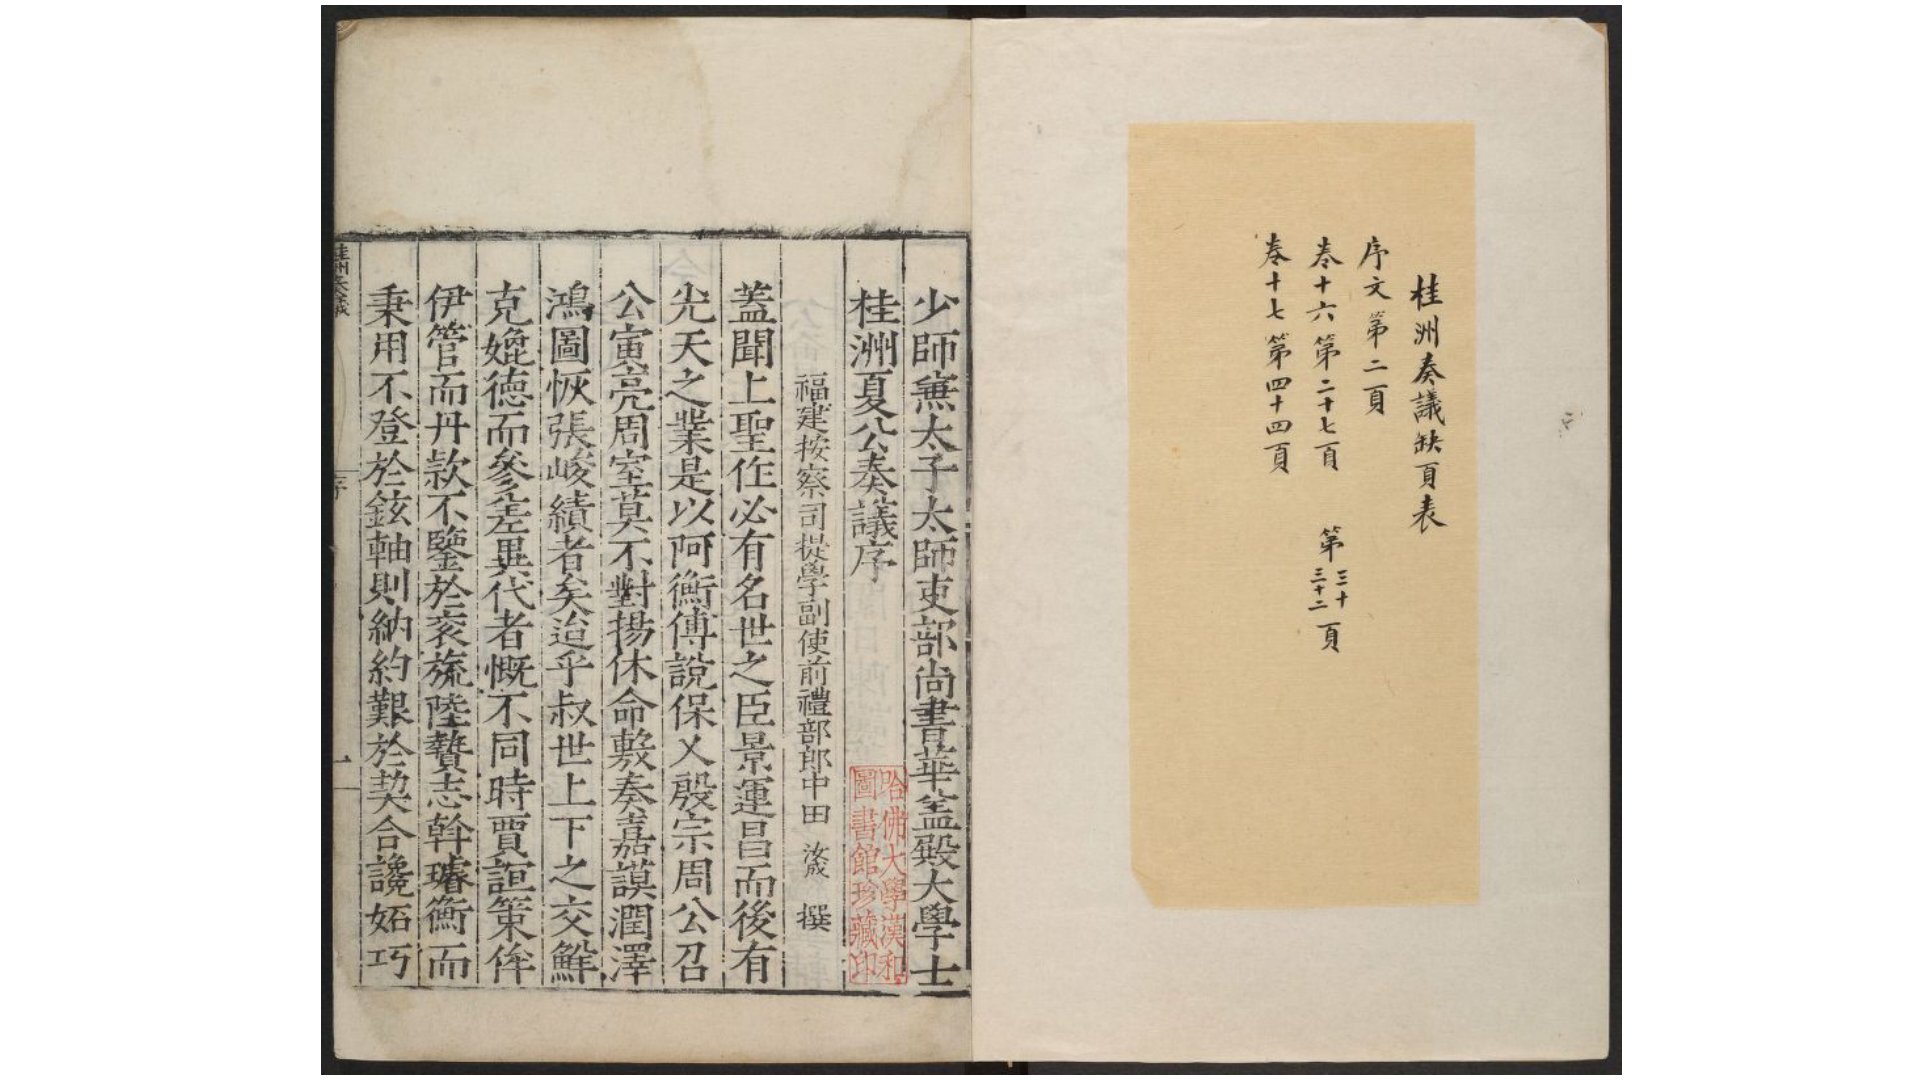 桂洲奏議缺頁表
序文第二頁
卷十六第二十七頁 第三十三十二頁
卷十七第四十四頁
少師兼太子太師吏部尚書華盖殿大學士
桂洲夏公奏議序
福建按察司提學副使前禮部郎中田汝成撰
蓋聞上聖作必有名世之臣景運昌而後有
光天之業是以阿衡傅說保乂殷宗周公召
公寅亮周室莫不對揚休命敷奏嘉謨潤澤
鴻圖恢張峻績者矣迨乎叔世上下之交鮮
克媲德而參差異代者慨不同時賈誼策侔
伊管而丹款不鑒於衮旒陸贄志斡璿衡而
秉用不登於鉉軸則納約艱於契合讒妬巧
桂洲奏議
序
一
哈佛大學漢和
圖書館珍藏印